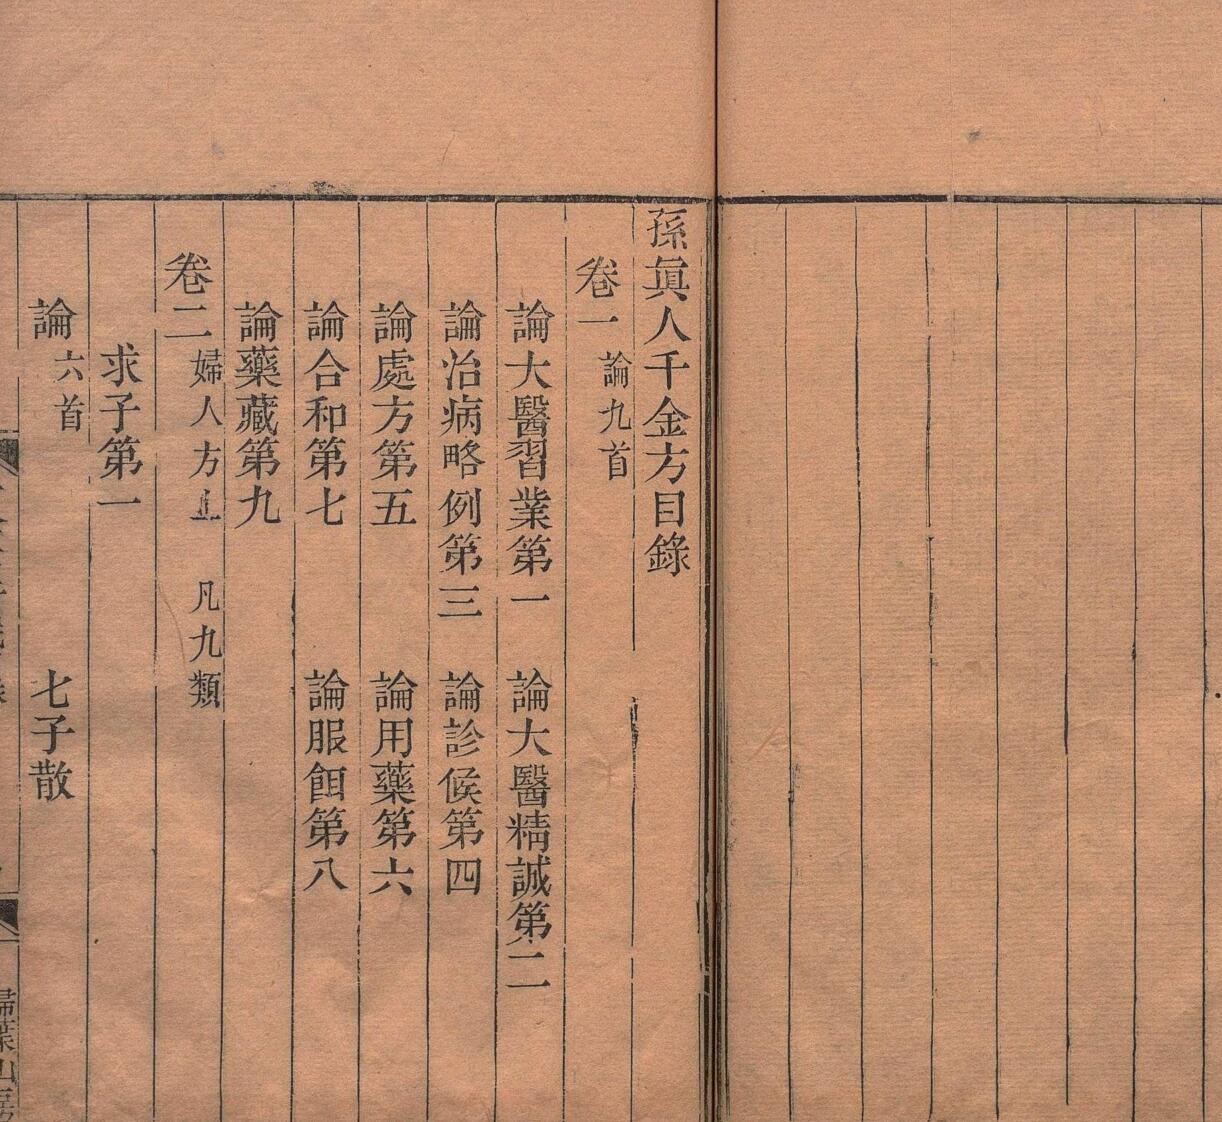 孫眞人千金方目錄
卷一 論九首
論大醫習業第一 論大醫精誠第二
論治病略例第三 論診候第四
論處方第五 論用藥第六
論合和第七 論服餌第八
論藥藏第九
卷二 婦人方上 凡九類
求子第一
論 六首 七子散
掃葉山房